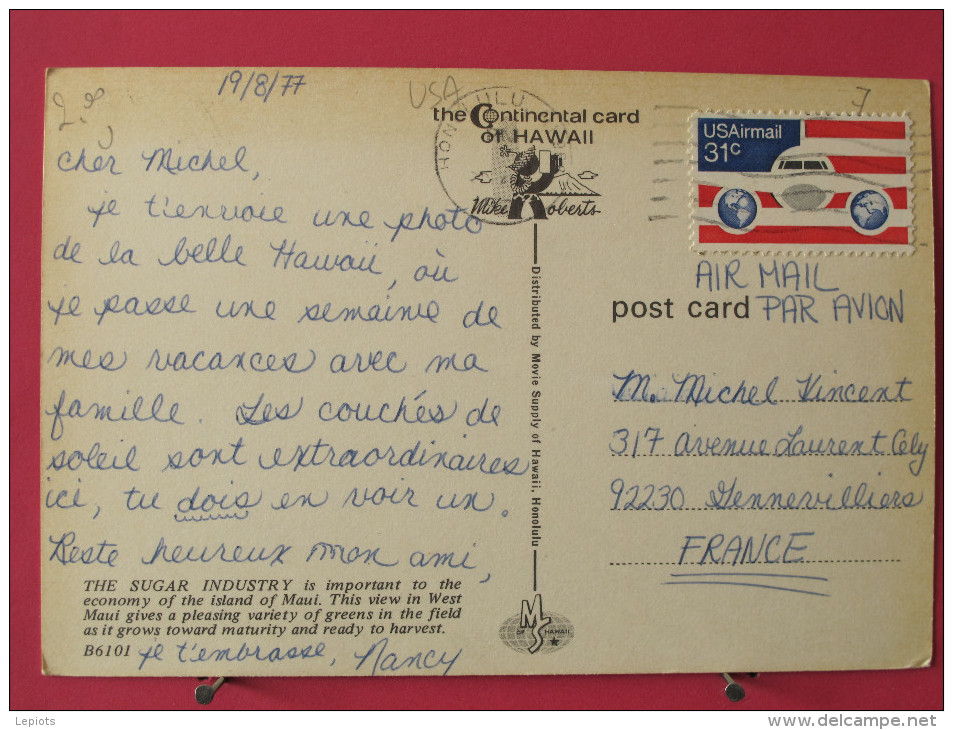 19/8/77
USA
the Continental card
of HAWAII
HONOLULU
Mike Roberts
USAirmail
31c
AIR MAIL
post card PAR AVION
cher Michel,
je t'envoie une photo
de la belle Hawaii, où
je passe une semaine de
mes vacances avec ma
famille. Les couchés de
soleil sont extraordinaires
ici, tu dois en voir un.
Reste heureux mon ami,
je t'embrasse, Nancy
THE SUGAR INDUSTRY is important to the
economy of the island of Maui. This view in West
Maui gives a pleasing variety of greens in the field
as it grows toward maturity and ready to harvest.
B6101
Distributed by Movie Supply of Hawaii, Honolulu
MS
OF HAWAII
M. Michel Vincent
317 avenue Laurent Cely
92230 Gennevilliers
FRANCE
Lepiots
www.delcampe.net